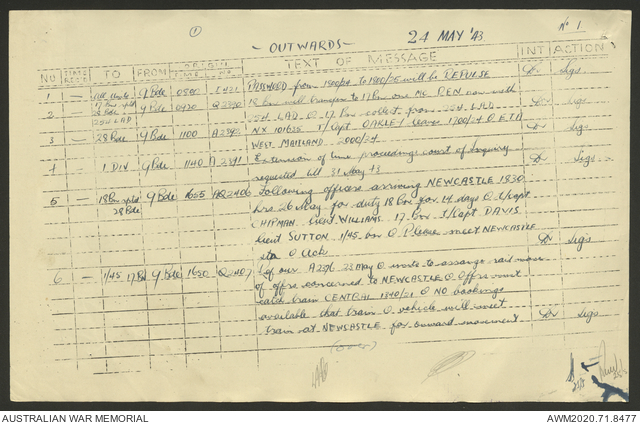 ① 24 MAY '43 Nº 1
- OUTWARDS -
NO TO FROM ORIGIN TEXT OF MESSAGE INT ACTION
TIME No.
1 — All Units 9 Bde 0500 PASSWORD from 1800/24 to 1800/25 will be REPULSE Sigs.
2 — 17 Bn rptd 9 Bde 0930 18 Bn will transfer to 17 Bn one MC now with
25 LAD 25d LAD O 17 Bn collect from 25d LAD Sigs.
3 — 28 Bde 9 Bde 1100 NX 101625 T/Capt OAKLEY leaves 1700/24 O ETA
WEST MAITLAND
4 — 1 DIV 9 Bde 1140 A2391 Extension of time proceedings court of enquiry
requested till 31 May 43 Sigs
5 — 18 Bn rptd 9 Bde 1655 AQ2406 Following officers arriving NEWCASTLE 1830
28 Bde hrs 26 May for duty 18 Bn for 14 days O L/Capt
CHIPMAN Lieut WILLIAMS 17 Bn T/Capt DAVIS
Lieut SUTTON 1/45 Bn O Please meet NEWCASTLE
sta O Ack Sigs
6 — 1/45 17 Bn 9 Bde 1650 Q2407 of our A2376 23 May O units to arrange rail move
of offrs concerned to NEWCASTLE O Offrs must
catch train CENTRAL O NO bookings
available that train O vehicle will meet Sigs
train at NEWCASTLE for onward movement
(over)
AUSTRALIAN WAR MEMORIAL AWM2020.71.8477